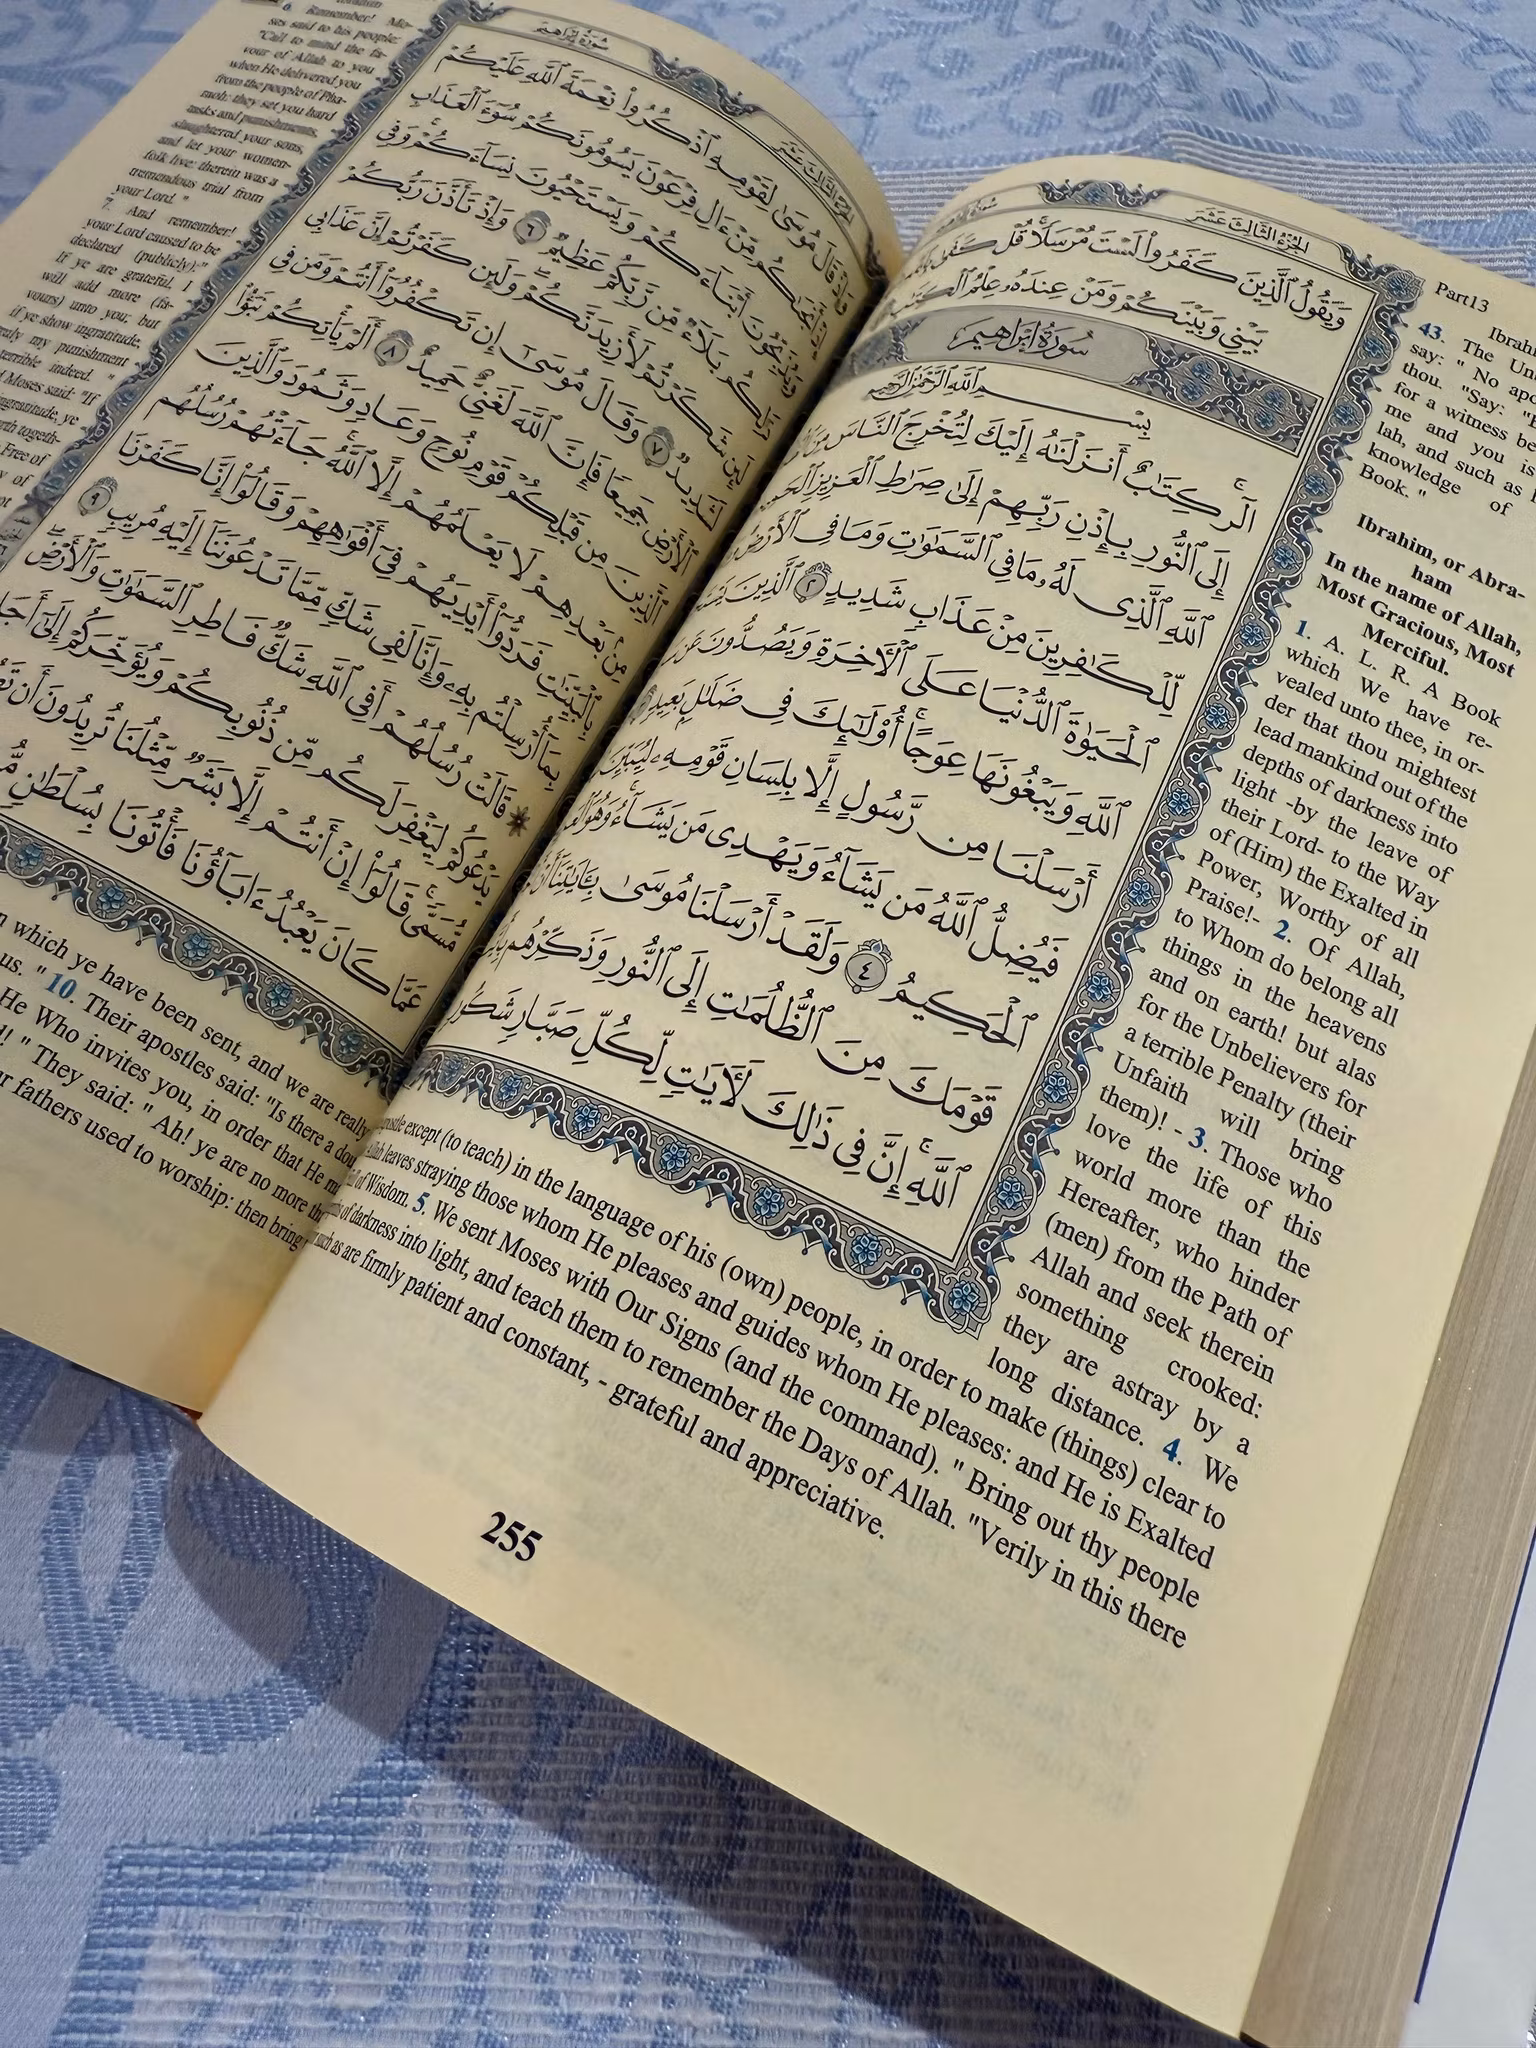 الجزء الثالث عشر
وَيَقُولُ ٱلَّذِينَ كَفَرُوا۟ لَسْتَ مُرْسَلًا ۚ قُلْ كَفَىٰ
بَيْنِى وَبَيْنَكُمْ وَمَنْ عِندَهُۥ عِلْمُ ٱلْكِتَٰبِ
سُورَةُ إِبْرَاهِيمَ
بِسْمِ ٱللَّهِ ٱلرَّحْمَٰنِ ٱلرَّحِيمِ
الٓر ۚ كِتَٰبٌ أَنزَلْنَٰهُ إِلَيْكَ لِتُخْرِجَ ٱلنَّاسَ مِنَ
إِلَى ٱلنُّورِ بِإِذْنِ رَبِّهِمْ إِلَىٰ صِرَٰطِ ٱلْعَزِيزِ ٱلْحَمِيدِ
ٱللَّهِ ٱلَّذِى لَهُۥ مَا فِى ٱلسَّمَٰوَٰتِ وَمَا فِى ٱلْأَرْضِ
لِّلْكَٰفِرِينَ مِنْ عَذَابٍ شَدِيدٍ ٢ ٱلَّذِينَ
ٱلْحَيَوٰةَ ٱلدُّنْيَا عَلَى ٱلْءَاخِرَةِ وَيَصُدُّونَ عَن
ٱللَّهِ وَيَبْغُونَهَا عِوَجًا ۚ أُو۟لَٰٓئِكَ فِى ضَلَٰلٍۭ بَعِيدٍ
أَرْسَلْنَا مِن رَّسُولٍ إِلَّا بِلِسَانِ قَوْمِهِۦ لِيُبَيِّنَ
فَيُضِلُّ ٱللَّهُ مَن يَشَآءُ وَيَهْدِى مَن يَشَآءُ ۚ وَهُوَ
ٱلْحَكِيمُ ٤ وَلَقَدْ أَرْسَلْنَا مُوسَىٰ بِـَٔايَٰتِنَآ أَنْ
قَوْمَكَ مِنَ ٱلظُّلُمَٰتِ إِلَى ٱلنُّورِ وَذَكِّرْهُم
ٱللَّهِ ۚ إِنَّ فِى ذَٰلِكَ لَءَايَٰتٍ لِّكُلِّ صَبَّارٍ شَكُورٍ
Part13
43. The
say: " No
thou. "Say:
for a witness
me and you is
lah, and such as
knowledge of
Book. "
Ibrahim, or Abra-
ham
In the name of Allah,
Most Gracious, Most
Merciful.
1. A. L. R. A Book
which We have re-
vealed unto thee, in or-
der that thou mightest
lead mankind out of the
depths of darkness into
light -by the leave of
their Lord- to the Way
of (Him) the Exalted in
Power, Worthy of all
Praise!- 2. Of Allah,
to Whom do belong all
things in the heavens
and on earth! but alas
for the Unbelievers for
a terrible Penalty (their
Unfaith will bring
them)! - 3. Those who
love the life of this
world more than the
Hereafter, who hinder
(men) from the Path of
Allah and seek therein
something crooked:
they are astray by a
long distance. 4. We
except (to teach) in the language of his (own) people, in order to make (things) clear to
Allah leaves straying those whom He pleases and guides whom He pleases: and He is Exalted
of Wisdom. 5. We sent Moses with Our Signs (and the command). " Bring out thy people
of darkness into light, and teach them to remember the Days of Allah. "Verily in this there
such as are firmly patient and constant, - grateful and appreciative.
255
سُورَةُ إِبْرَاهِيمَ
الجزء الثالث عشر
قَالَ مُوسَىٰ لِقَوْمِهِ ٱذْكُرُوا۟ نِعْمَةَ ٱللَّهِ عَلَيْكُمْ
مِّنْ ءَالِ فِرْعَوْنَ يَسُومُونَكُمْ سُوٓءَ ٱلْعَذَابِ
أَبْنَآءَكُمْ وَيَسْتَحْيُونَ نِسَآءَكُمْ ۚ وَفِى
بَلَآءٌ مِّن رَّبِّكُمْ عَظِيمٌ ٦ وَإِذْ تَأَذَّنَ رَبُّكُمْ
لَئِن شَكَرْتُمْ لَأَزِيدَنَّكُمْ ۖ وَلَئِن كَفَرْتُمْ إِنَّ عَذَابِى
لَشَدِيدٌ ٧ وَقَالَ مُوسَىٰٓ إِن تَكْفُرُوٓا۟ أَنتُمْ وَمَن فِى
ٱلْأَرْضِ جَمِيعًا فَإِنَّ ٱللَّهَ لَغَنِىٌّ حَمِيدٌ ٨ أَلَمْ يَأْتِكُمْ نَبَؤُا۟
ٱلَّذِينَ مِن قَبْلِكُمْ قَوْمِ نُوحٍ وَعَادٍ وَثَمُودَ ۛ وَٱلَّذِينَ
مِنۢ بَعْدِهِمْ ۛ لَا يَعْلَمُهُمْ إِلَّا ٱللَّهُ ۚ جَآءَتْهُمْ رُسُلُهُم
بِٱلْبَيِّنَٰتِ فَرَدُّوٓا۟ أَيْدِيَهُمْ فِىٓ أَفْوَٰهِهِمْ وَقَالُوٓا۟ إِنَّا كَفَرْنَا
بِمَآ أُرْسِلْتُم بِهِۦ وَإِنَّا لَفِى شَكٍّ مِّمَّا تَدْعُونَنَآ إِلَيْهِ مُرِيبٍ ٩
قَالَتْ رُسُلُهُمْ أَفِى ٱللَّهِ شَكٌّ فَاطِرِ ٱلسَّمَٰوَٰتِ وَٱلْأَرْضِ ۖ
يَدْعُوكُمْ لِيَغْفِرَ لَكُم مِّن ذُنُوبِكُمْ وَيُؤَخِّرَكُمْ إِلَىٰٓ
مُّسَمًّى ۚ قَالُوٓا۟ إِنْ أَنتُمْ إِلَّا بَشَرٌ مِّثْلُنَا تُرِيدُونَ أَن
عَمَّا كَانَ يَعْبُدُ ءَابَآؤُنَا فَأْتُونَا بِسُلْطَٰنٍ
6 Remember! Mo-
ses said to his people:
"Call to mind the fa-
vour of Allah to you
when He delivered you
from the people of Pha-
raoh: they set you hard
tasks and punishments,
slaughtered your sons,
and let your women-
folk live: therein was a
tremendous trial from
your Lord. "
7. And remember!
your Lord caused to be
declared (publicly):"
If ye are grateful, I
will add more (fa-
vours) unto you; but
if ye show ingratitude,
my punishment
terrible indeed. "
Moses said: "If
ingratitude, ye
togeth-
Free of
of
which ye have been sent, and we are really
us. " 10. Their apostles said: "Is there a
He Who invites you, in order that He
" They said: " Ah! ye are no more
fathers used to worship: then bring